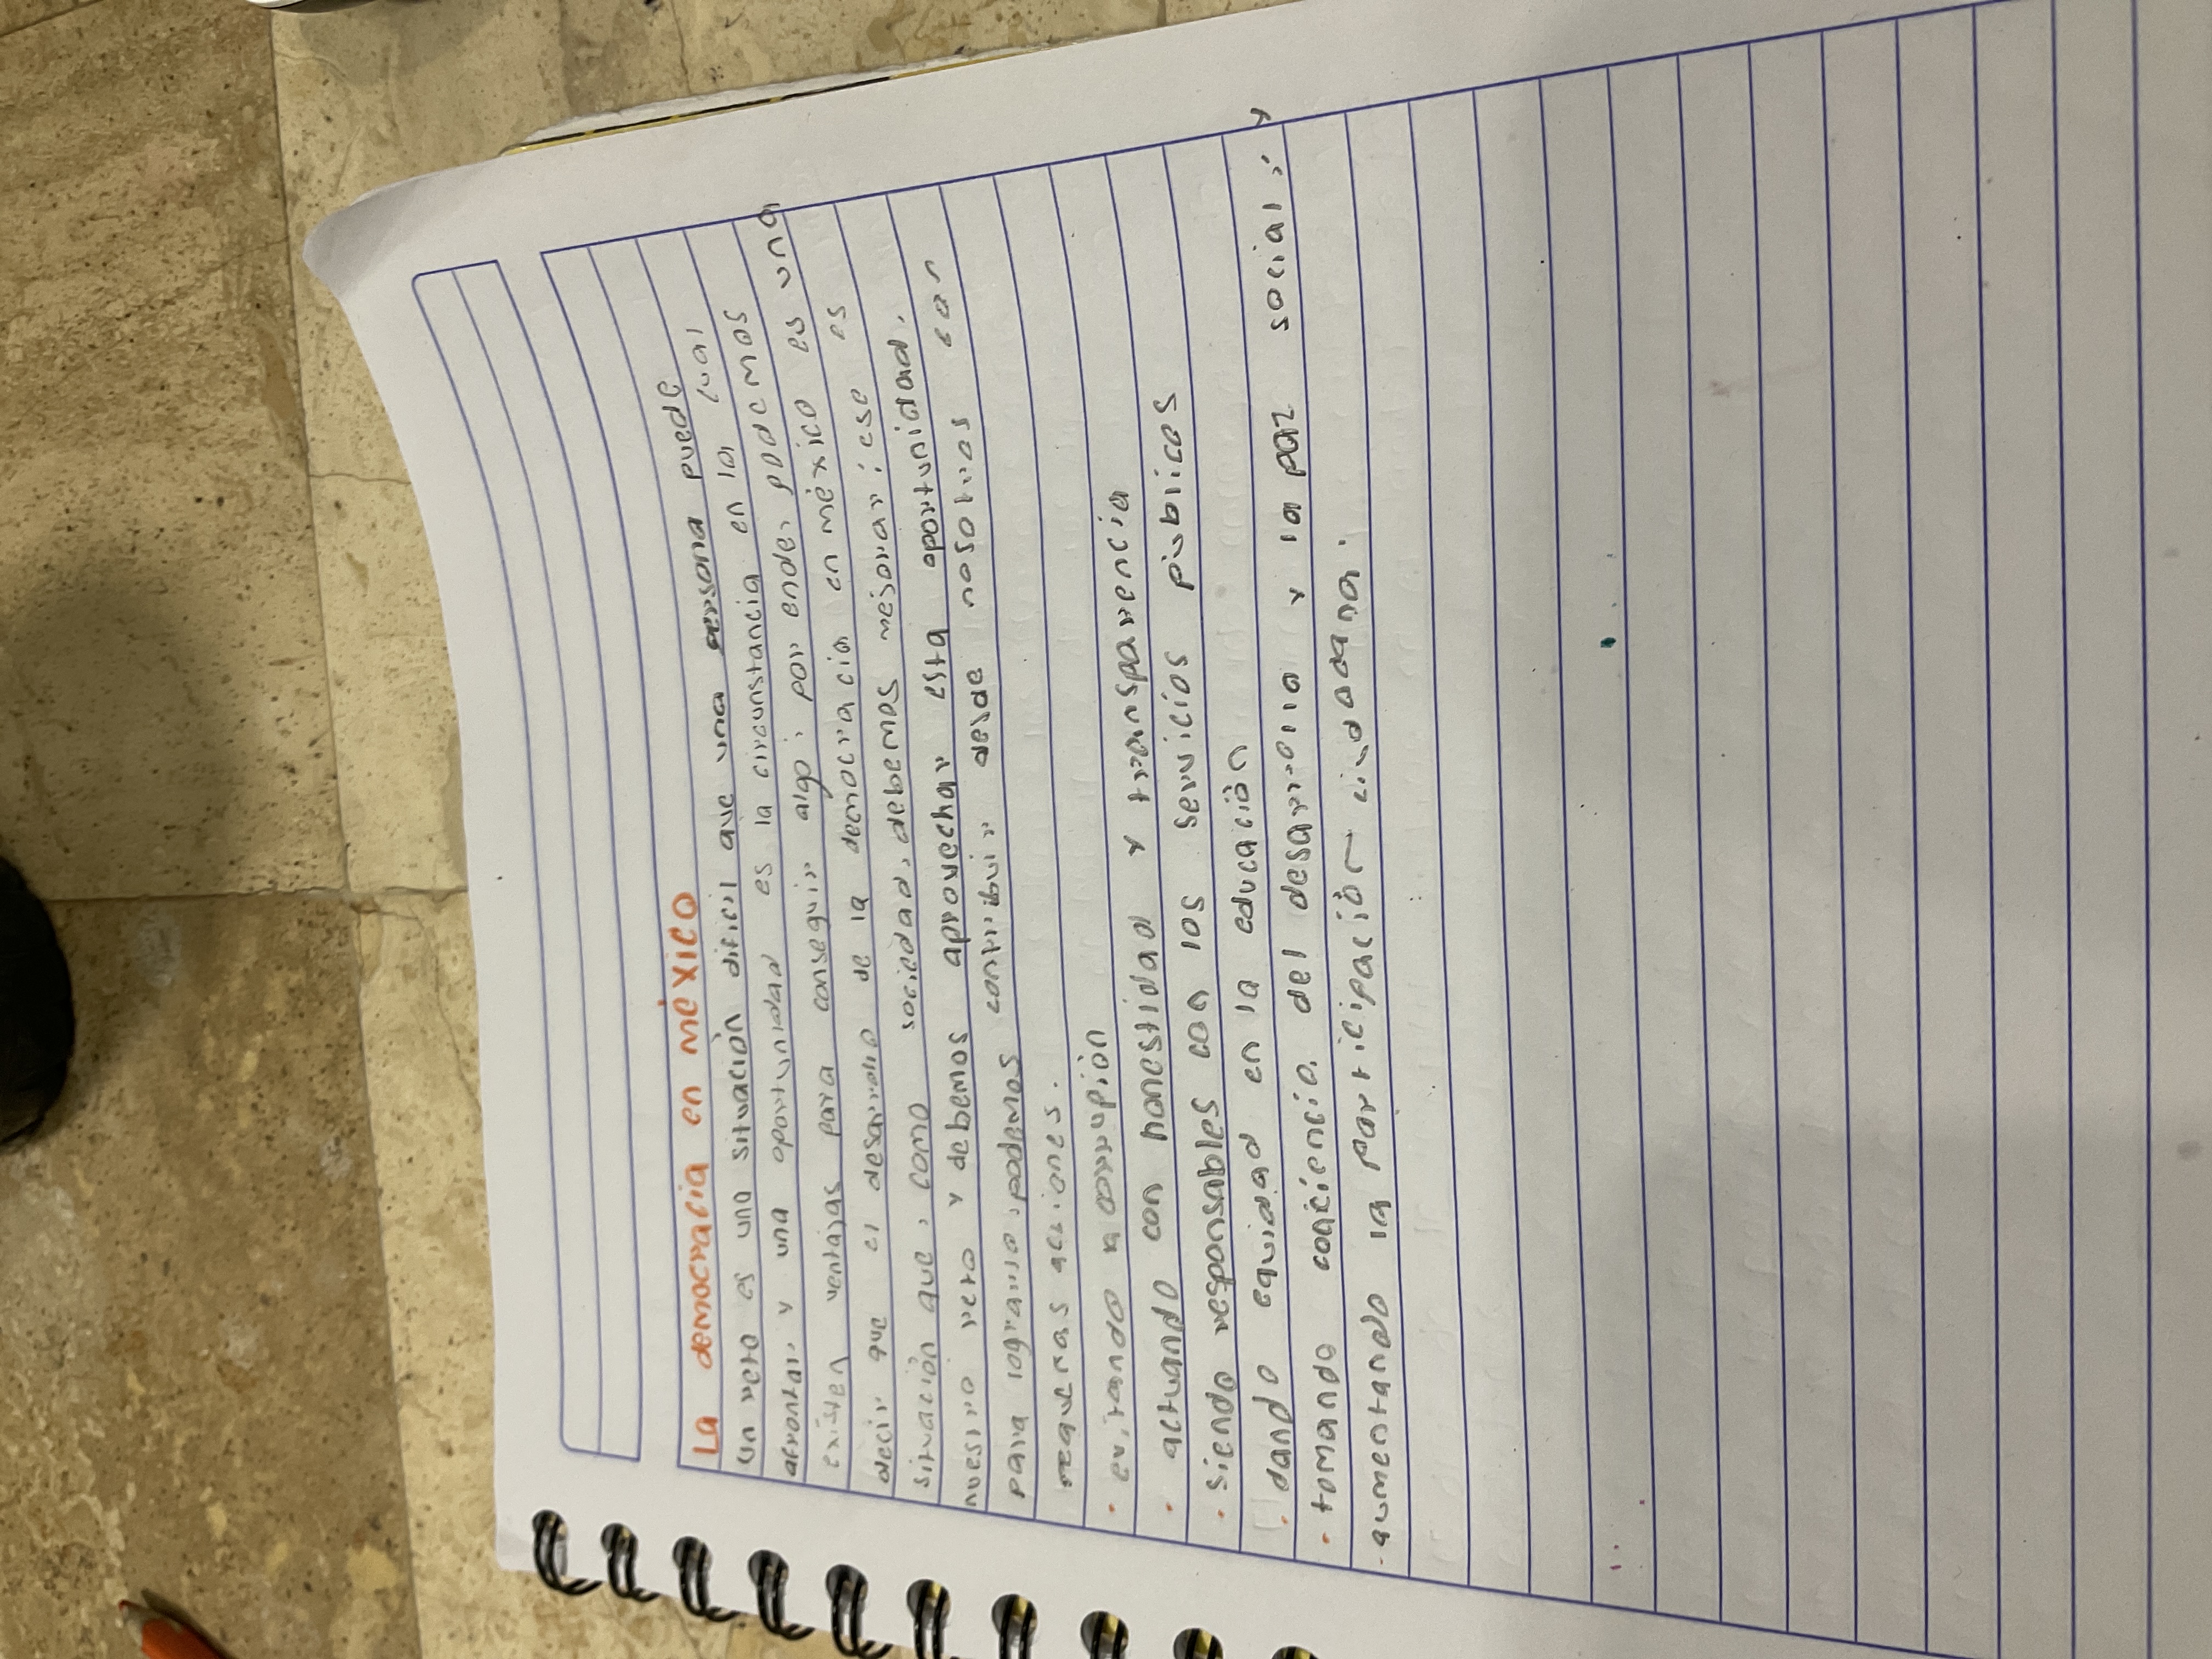 La democracia en méxico
Un reto es una situación dificil que una persona puede
afrontar y una oportunidad es la circunstancia en la cual
existen ventajas para conseguir algo, por ende, podemos
decir que el desarrollo de la democracia en méxico es una
situación que, como sociedad, debemos mejorar; ese es
nuestro reto y debemos aprovechar esta oportunidad.
para lograrlo, podemos contribuir desde nosotros con
pequeñas acciones.
· evitando la corrupión
· actuando con honestidad y transparencia
· siendo responsables con los servicios públicos
· dando equidad en la educación
· tomando conciencia del desarrollo y la paz social; y
· aumentando la participación ciudadana.